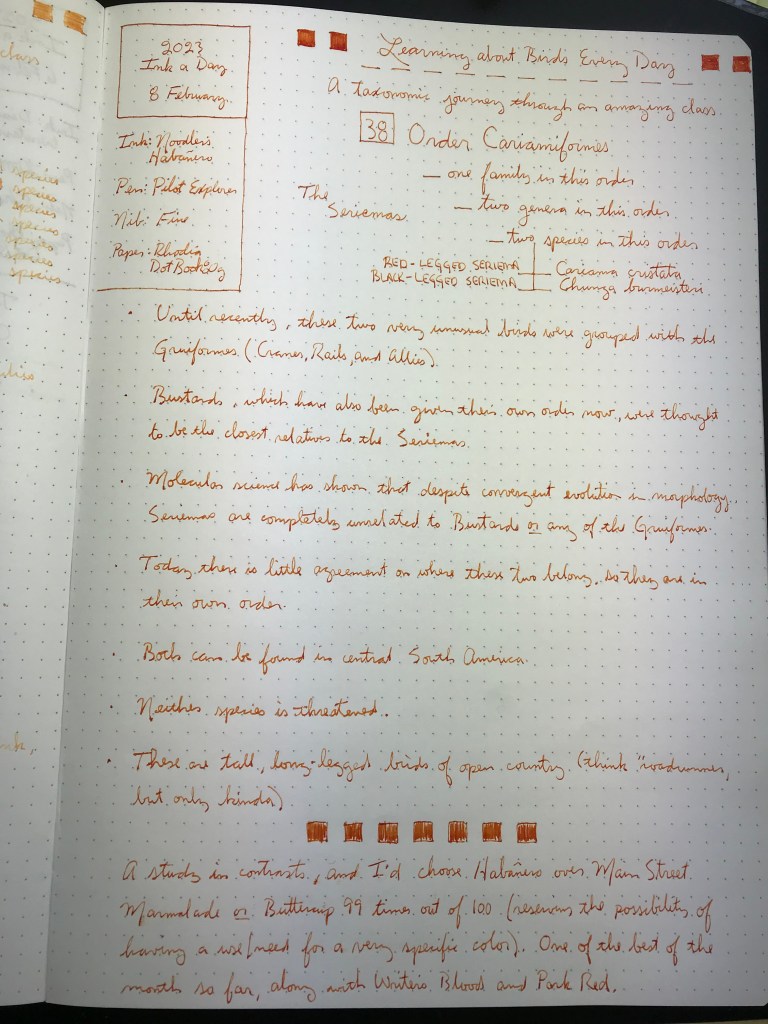 2023
Ink a Day
8 February
Ink: Noodler's
Habañero
Pen: Pilot Explorer
Nib: Fine
Paper: Rhodia
DotBook 80g
Learning about Birds Every Day
A taxonomic journey through an amazing class
38 Order Cariamiformes
— one family in this order
The
Seriemas
— two genera in this order
— two species in this order
RED-LEGGED SERIEMA — Cariama cristata
BLACK-LEGGED SERIEMA — Chunga burmeisteri
• Until recently, these two very unusual birds were grouped with the
Gruiformes (Cranes, Rails, and Allies).
• Bustards, which have also been given their own order now, were thought
to be the closest relatives to the Seriemas.
• Molecular science has shown that despite convergent evolution in morphology,
Seriemas are completely unrelated to Bustards or any of the Gruiformes.
• Today there is little agreement on where these two belong, so they are in
their own order.
• Both can be found in central South America.
• Neither species is threatened.
• These are tall, long-legged birds of open country. (think "roadrunner,
but only kinda)
A study in contrasts, and I'd choose Habañero over Main Street
Marmalade or Buttercup 99 times out of 100 (reserving the possibility of
having a use/need for a very specific color). One of the best of the
month so far, along with Writer's Blood and Park Red.
class
species
species
species
species
species
species